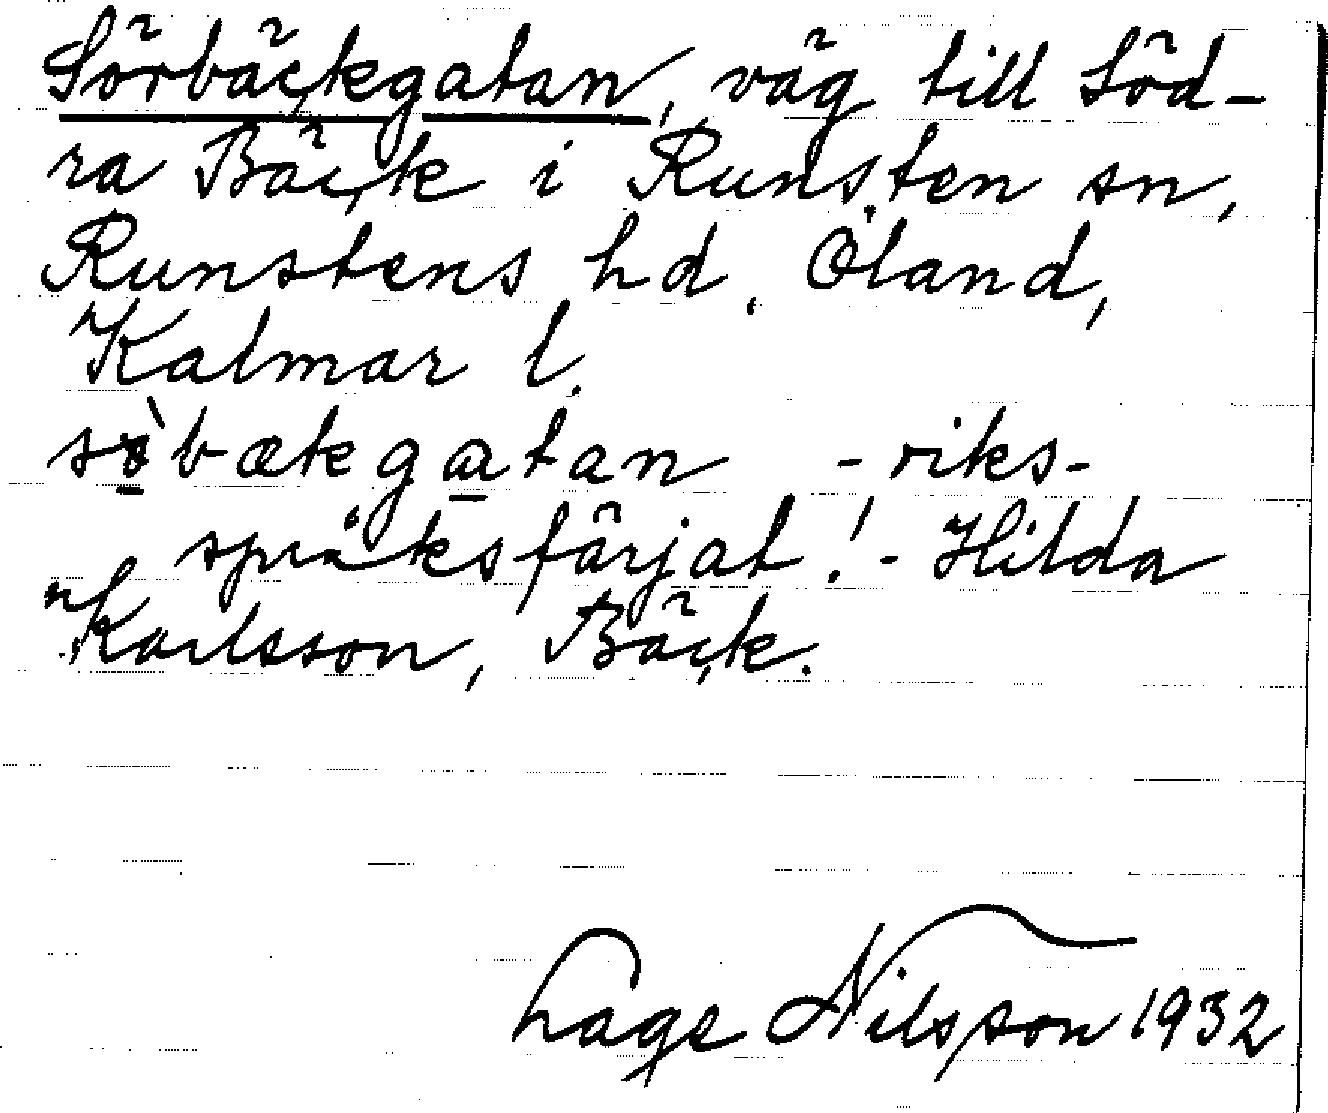 Sörbäckgatan, väg till Söd-
ra Bäck i Runsten sn,
Runstens hd. Öland,
Kalmar l.
-riks-
språksfärjat! - Hilda
Karlsson, Bäck.
Lage Nilsson 1932